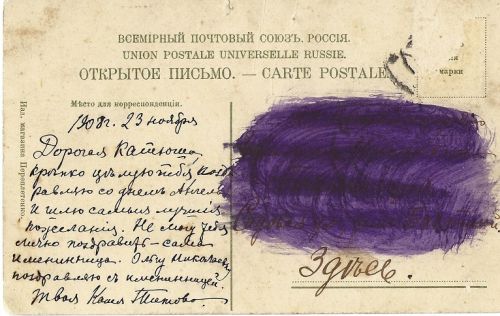 ВСЕМІРНЫЙ ПОЧТОВЫЙ СОЮЗЪ. РОССІЯ.
UNION POSTALE UNIVERSELLE RUSSIE.
ОТКРЫТОЕ ПИСЬМО. — CARTE POSTALE
марки
Мѣсто для корреспонденціи.
Изд. магазина Переплетенко.
1908 г. 23 ноября
Дорогая Катюша,
крѣпко цѣлую тебя позд
равляю со днемъ Ангела
и шлю самыя лучшія
пожеланія. Не могу тебя
лично поздравить – сама
именинница. Ольгу Николаев
поздравляю съ именинницей.
Твоя Катя Титова.
Здѣсь.